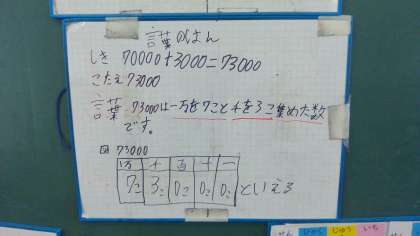 言葉のはん
しき 70000+3000=73000
こたえ73000
言葉 73000は一万を7こと千を3こ集めた数
です。
図 73000
一万 千 百 十 一
7こ 3こ 0こ 0こ 0こ といえる
ひゃく じゅう いち